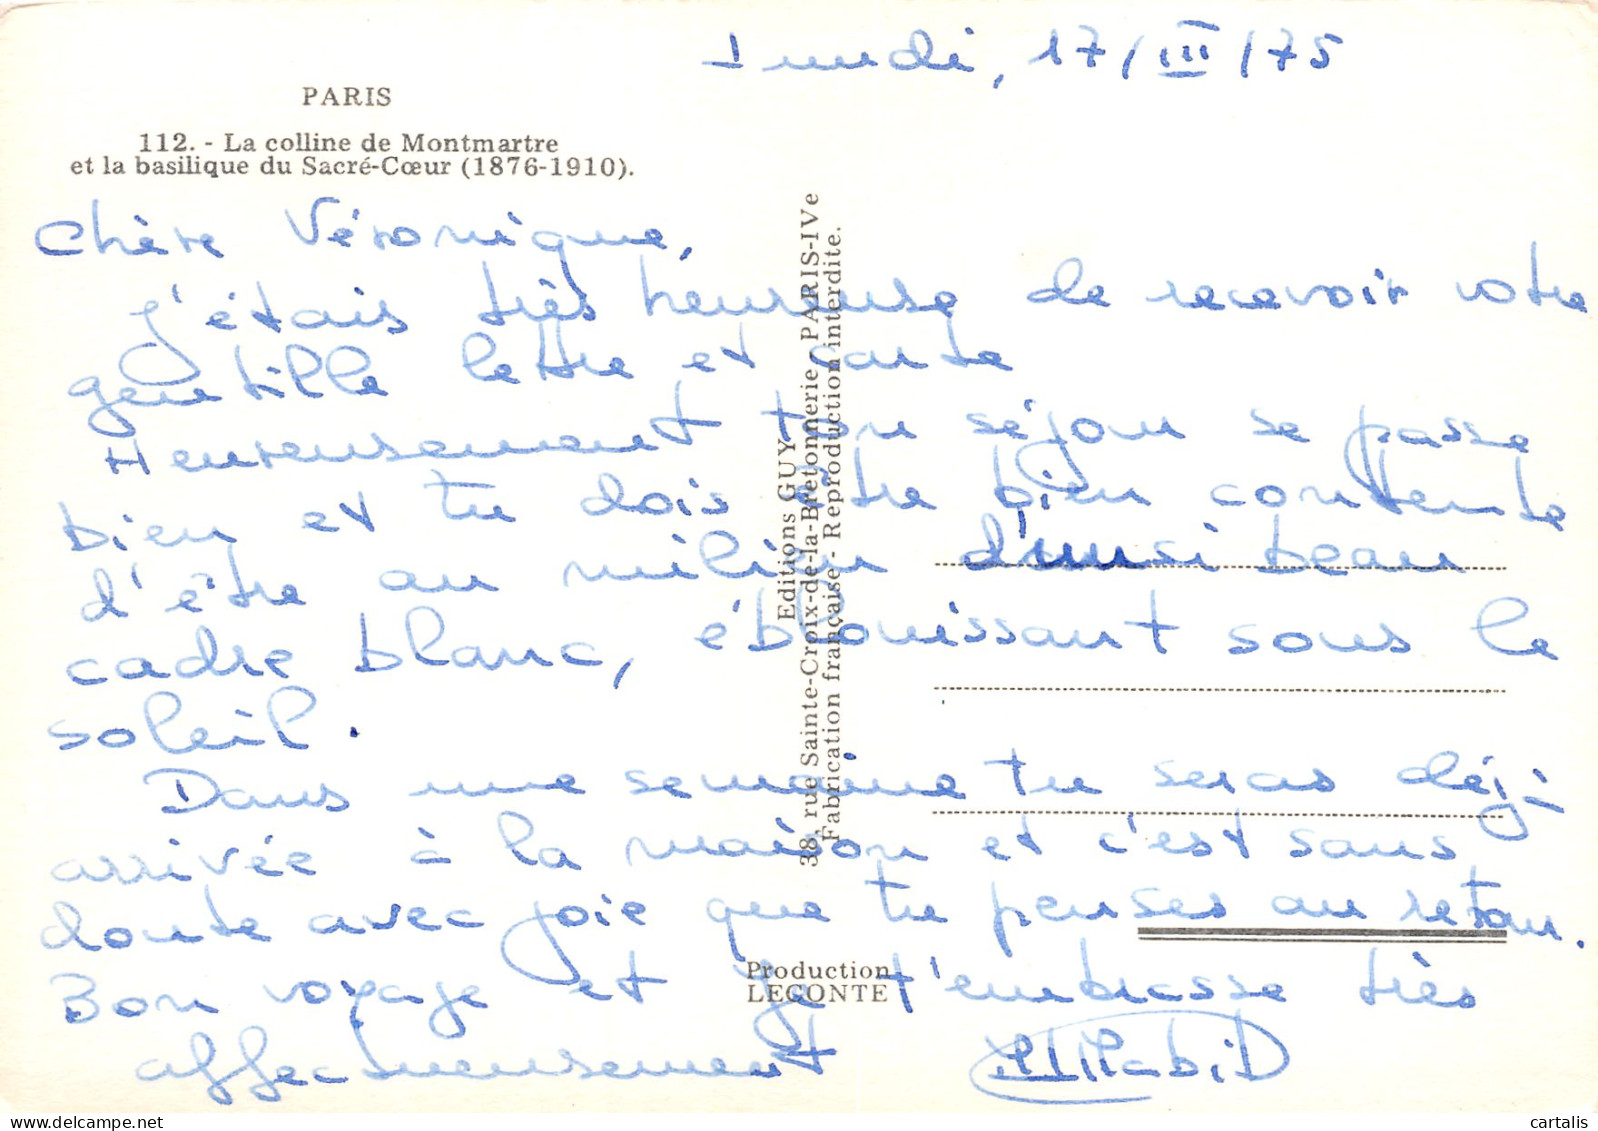 lundi, 17/III/75
PARIS
112. - La colline de Montmartre
et la basilique du Sacré-Cœur (1876-1910).
Chère Véronique,
j'étais très heureuse de recevoir votre
gentille lettre et carte
Heureusement ton séjour se passe
bien et tu dois être bien contente
d'être au milieu d'un si beau
cadre blanc, éblouissant sous le
soleil.
Dans une semaine tu seras déjà
arrivée à la maison et c'est sans
doute avec joie que tu penses au retour.
Bon voyage et je t'embrasse très
affectueusement
Editions GUY
38, rue Sainte-Croix-de-la-Bretonnerie - PARIS-IVe
Fabrication française - Reproduction interdite.
Production
LECONTE
cartalis